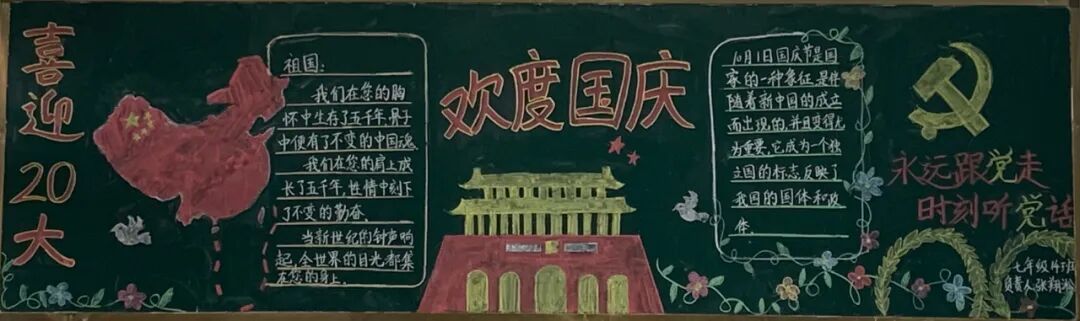 喜迎20大
祖国:
我们在您的胸
怀中生存了五千年,骨子
中便有了不变的中国魂
我们在您的肩上成
长了五千年,性情中刻下
了不变的勤奋、
当新世纪的钟声响
起,全世界的目光都集
在您的身上。
欢度国庆
10月1日国庆节是国
家的一种象征,是伴
随着新中国的成立
而出现的,并且变得尤
为重要,它成为一个独
立国的标志反映了
我国的国体和政
体
永远跟党走
时刻听党话
七年级14班
负责人张翔